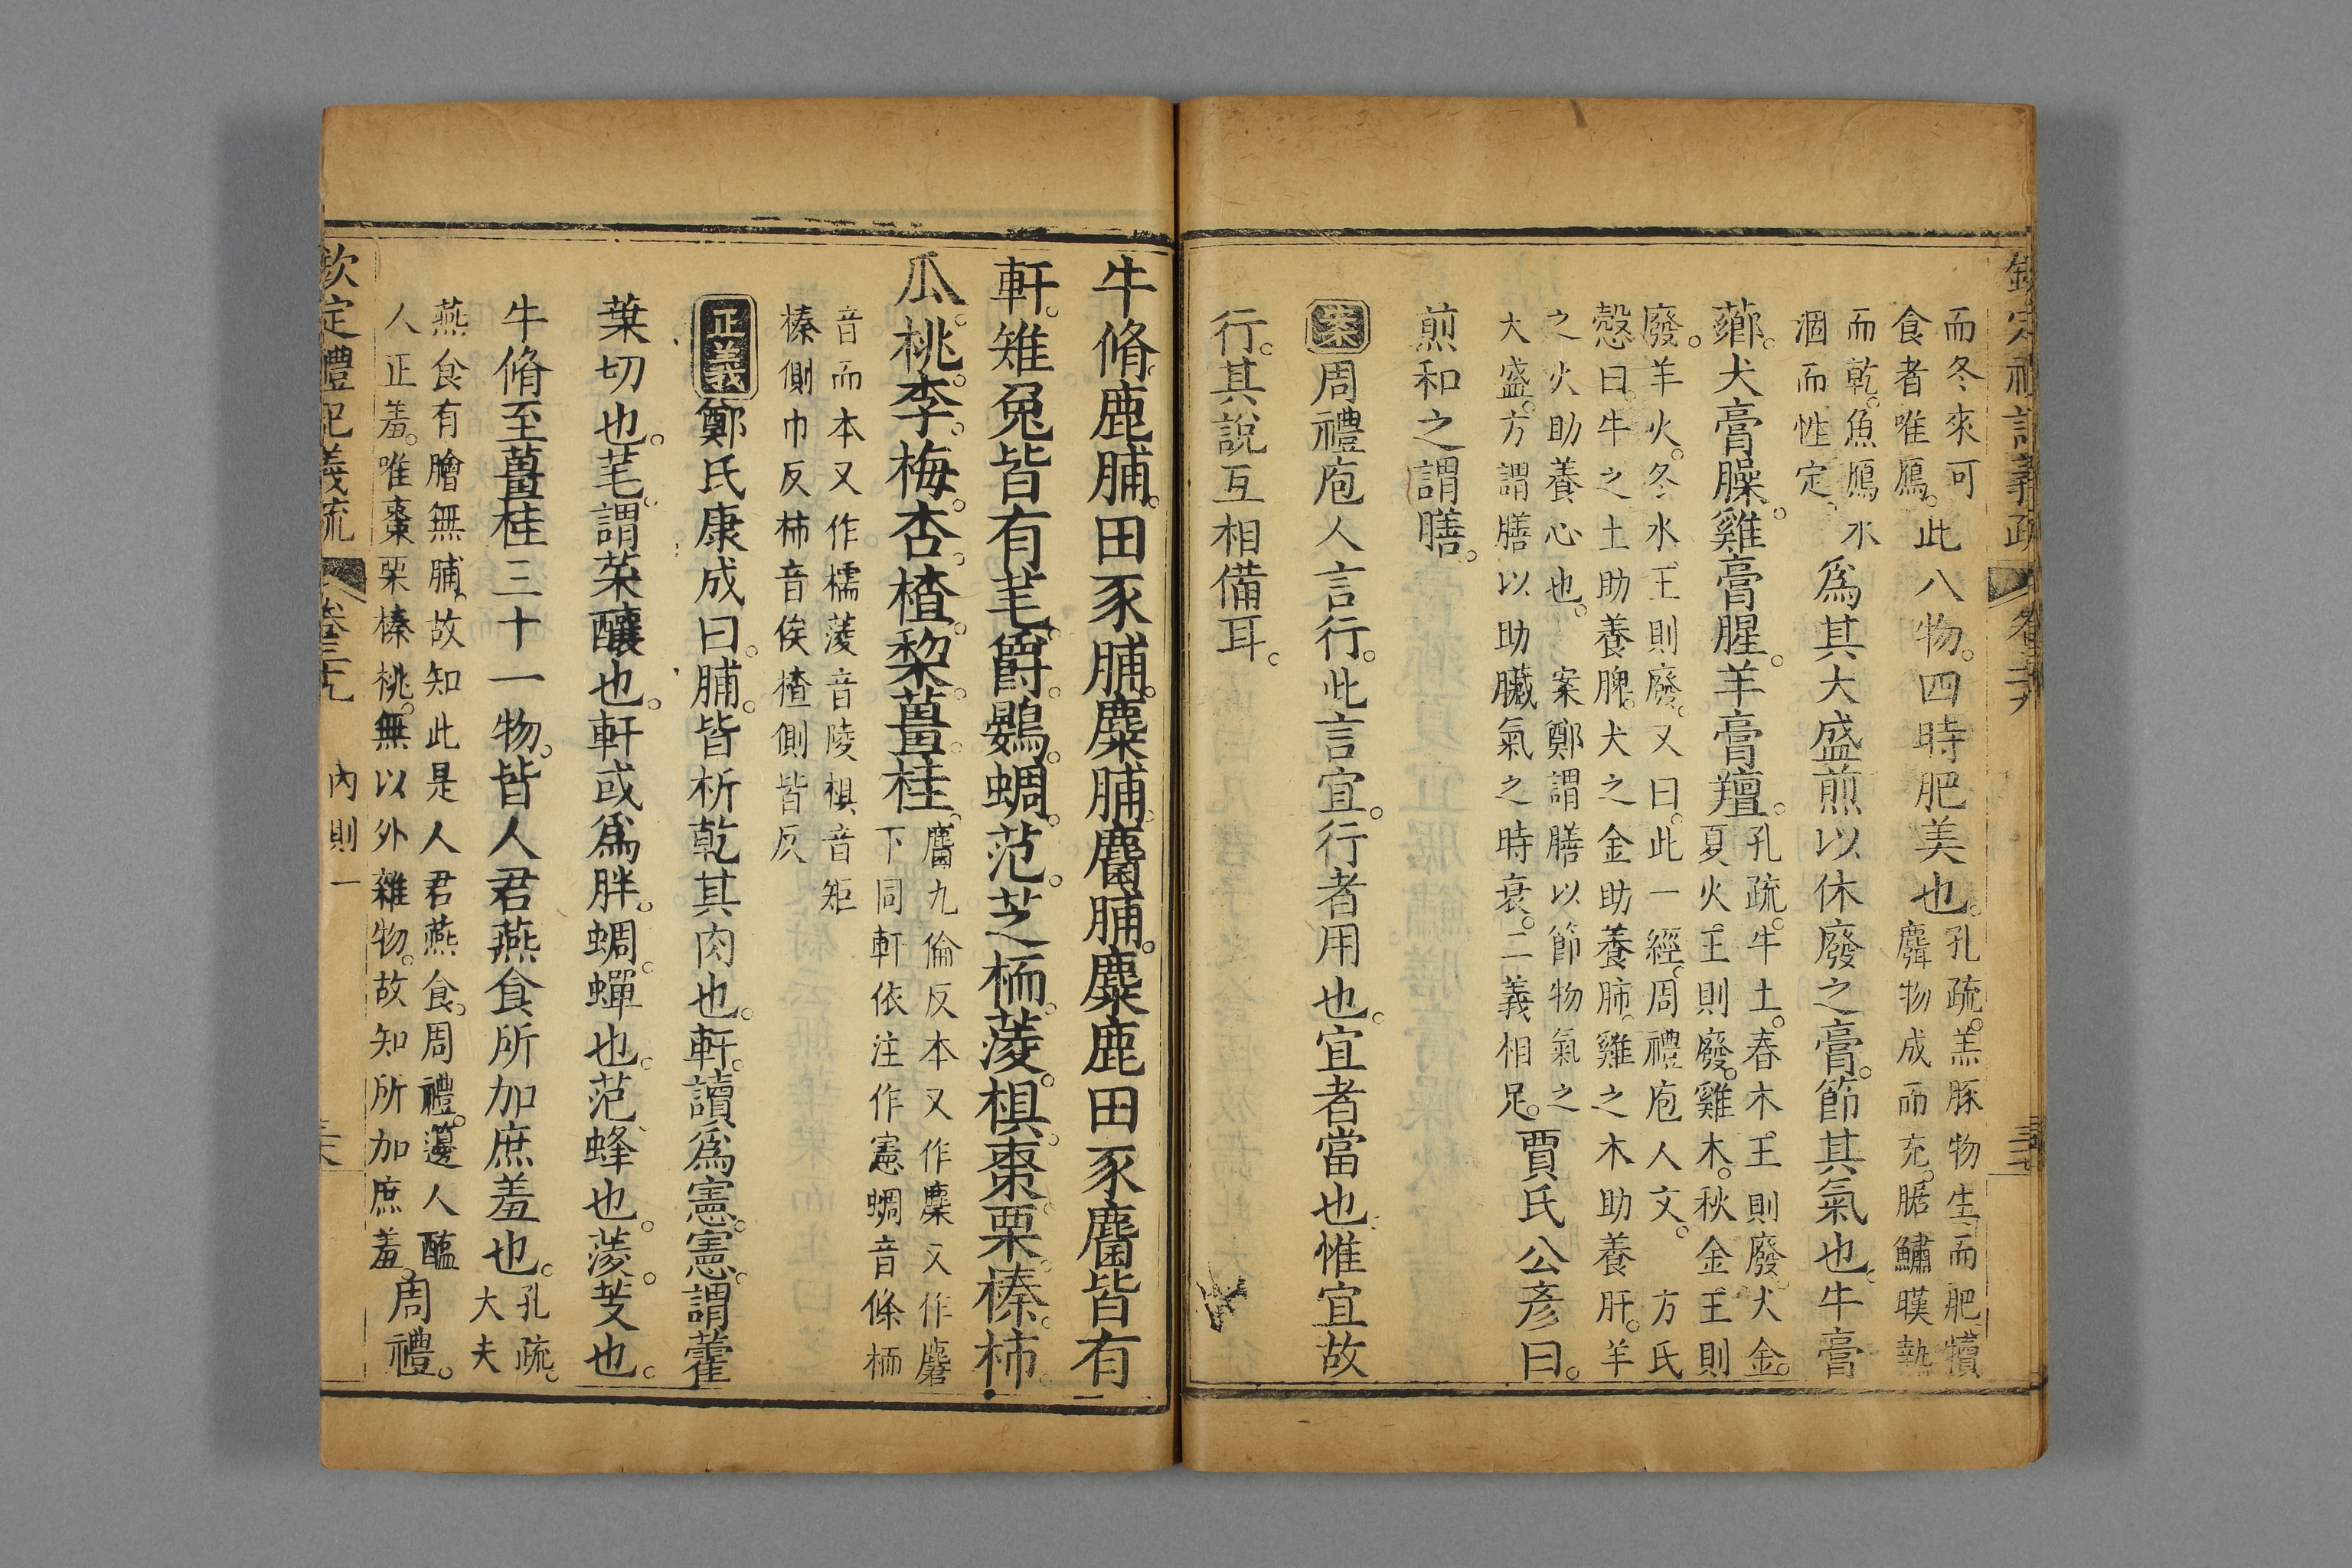 欽定禮記義疏 卷三十九
而冬來可食者唯鴈。此八物。四時肥美也。孔疏。羔豚物生而肥。犢麛物成而充。腒鱐暵熱
而乾。魚鴈水涸而性定。爲其大盛煎以休廢之膏。節其氣也。牛膏
薌。犬膏臊。雞膏腥。羊膏羶。孔疏。牛土。春木王則廢。犬金。夏火王則廢。雞木。秋金王則
廢。羊火。冬水王則廢。又曰。此一經。周禮庖人文。 方氏慤曰。牛之土助養脾。犬之金助養肺。雞之木助養肝。羊
之火助養心也。 案鄭謂膳以節物氣之大盛。方謂膳以助臟氣之時衰。二義相足。賈氏公彥曰。
煎和之謂膳。
案周禮庖人言行。此言宜。行者用也。宜者當也。惟宜故
行。其說互相備耳。
牛脩鹿脯。田豕脯。麋脯。麕脯。麋鹿田豕麕皆有
軒。雉兔皆有芼。爵鷃。蜩。范。芝栭。蔆。椇。棗。栗。榛。柿。
瓜。桃。李。梅。杏。楂。棃。薑。桂。麕九倫反本又作麇又作麏下同軒依注作憲蜩音條栭
音而本又作檽蔆音陵椇音矩榛側巾反柿音俟楂側皆反
正義鄭氏康成曰。脯。皆析乾其肉也。軒。讀爲憲。憲。謂藿
葉切也。芼。謂菜釀也。軒或爲胖。蜩。蟬也。范。蜂也。蔆。芰也。
牛脩至薑桂三十一物。皆人君燕食所加庶羞也。孔疏。大夫
燕食有膾無脯。故知此是人君燕食。周禮。籩人醢人正羞。唯棗栗榛桃。無以外雜物。故知所加庶羞。周禮。
欽定禮記義疏 卷三十九 內則一